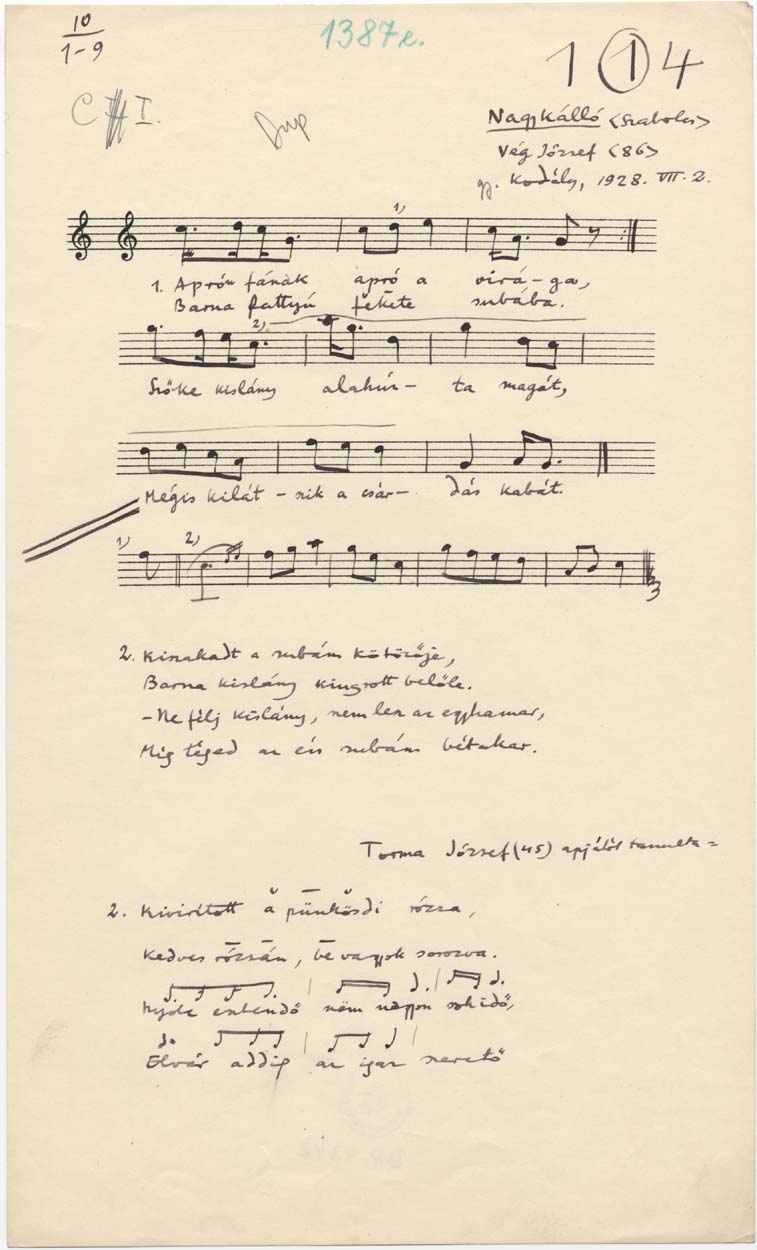 10
1-9
1387e.
1 1 4
C I.
Dup
Nagykálló <Szabolcs>
Vég József <86>
gy. Kodály, 1928. VII. 2.
1)
1. Aprón fának apró a virá-ga,
Barna fattyú fekete subába.
2)
Szőke kislány alahúz-ta magát,
Mégis kilát-szik a csár-dás kabát.
1) 2)
3
2. Kiszakadt a subám kötözője,
Barna kislány kiugrott belőle.
-Ne félj kislány, nem lesz az egyhamar,
Míg téged az én subám bétakar.
Torma József (45) apjától tanulta=
2. Kivirított a pünkösdi rózsa,
Kedves rózsám, be vagyok sorozva.
Nyolc esztendő nem nagyon sok idő,
Elvár addig az igaz szerető